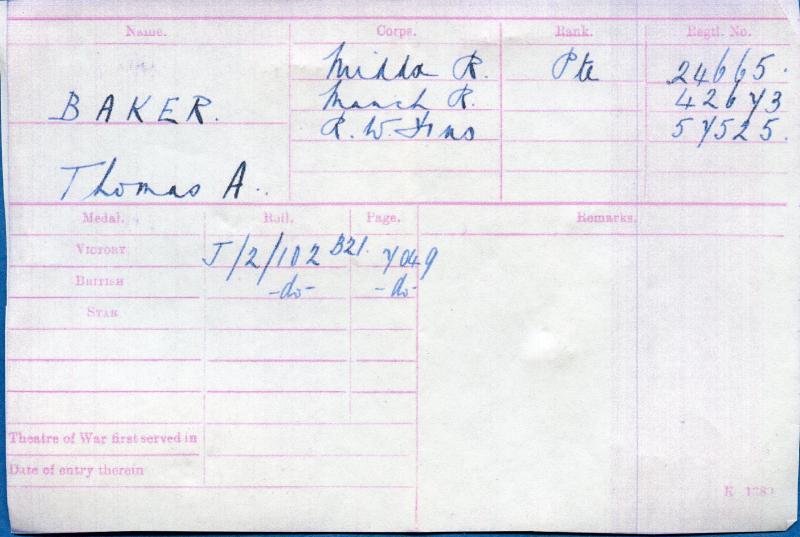 Name. Corps. Rank. Regtl. No.
BAKER. Middx R. Pte 24665.
Manch R. 42673
R. W. Fus 57525.
Thomas A.
Medal. Roll. Page. Remarks.
VICTORY J/2/102 B21. 7049
BRITISH -do- -do-
STAR
Theatre of War first served in
Date of entry therein
K 1380